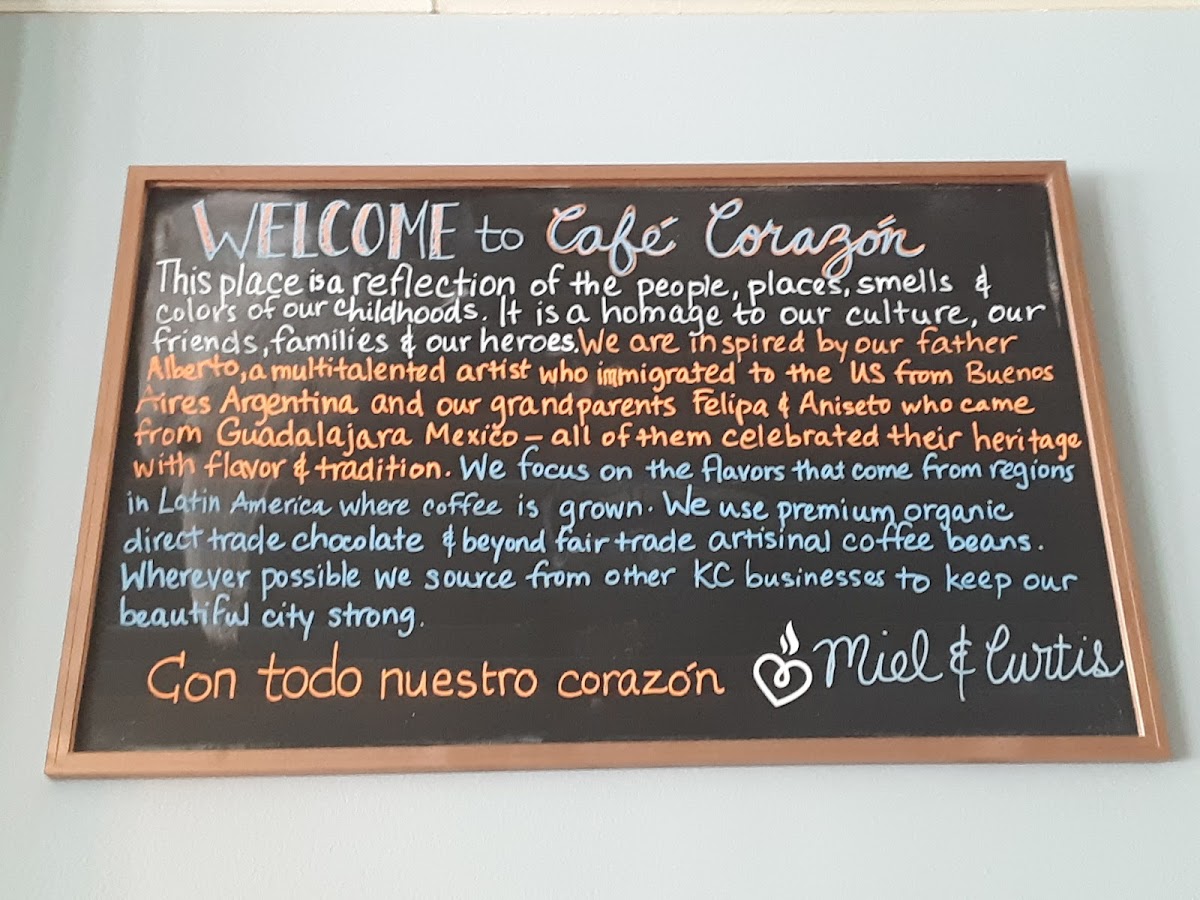 WELCOME to Café Corazón
This place is a reflection of the people, places, smells &
colors of our childhoods. It is a homage to our culture, our
friends, families & our heroes. We are inspired by our father
Alberto, a multitalented artist who immigrated to the US from Buenos
Aires Argentina and our grandparents Felipa & Aniseto who came
from Guadalajara Mexico – all of them celebrated their heritage
with flavor & tradition. We focus on the flavors that come from regions
in Latin America where coffee is grown. We use premium organic
direct trade chocolate & beyond fair trade artisinal coffee beans.
Wherever possible we source from other KC businesses to keep our
beautiful city strong.
Con todo nuestro corazón Miel & Curtis